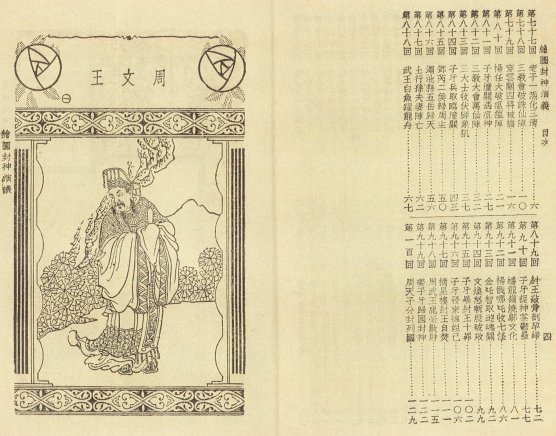 繪圖封神演義 目次
四
第七十七回 老子一氣化三清 六
第七十八回 三教會破誅仙陣 一〇
第七十九回 穿雲關四將被擒 一六
第八十回 楊任大破瘟𤺊陣
第八十一回 子牙潼關遇痘神 二七
第八十二回 三教大會萬仙陣 三二
第八十三回 三大士收伏獅象犼 三七
第八十四回 子牙兵取臨潼關 四三
第八十五回 鄧芮二侯歸周主 五〇
第八十六回 澠池縣五岳歸天
第八十七回 土行孫夫妻陣亡 六二
第八十八回 武王白魚躍龍舟 六七
第八十九回 紂王敲骨剖孕婦 七二
第九十回 子牙捉神荼鬱壘 七七
第九十一回 蟠龍嶺燒鄔文化 八一
第九十二回 楊戩哪吒收七怪 八六
第九十三回 金吒智取遊魂關
第九十四回 文煥怒斬殷破敗
第九十五回 子牙暴紂王十罪 一〇二
第九十六回 子牙發柬擒妲己 一〇六
第九十七回 摘星樓紂王自焚 一一一
第九十八回 周武王鹿臺散財 一一五
第九十九回 姜子牙歸國封神
第一百回 周天子分封列國 一二九
周文王
一
繪圖封神演義